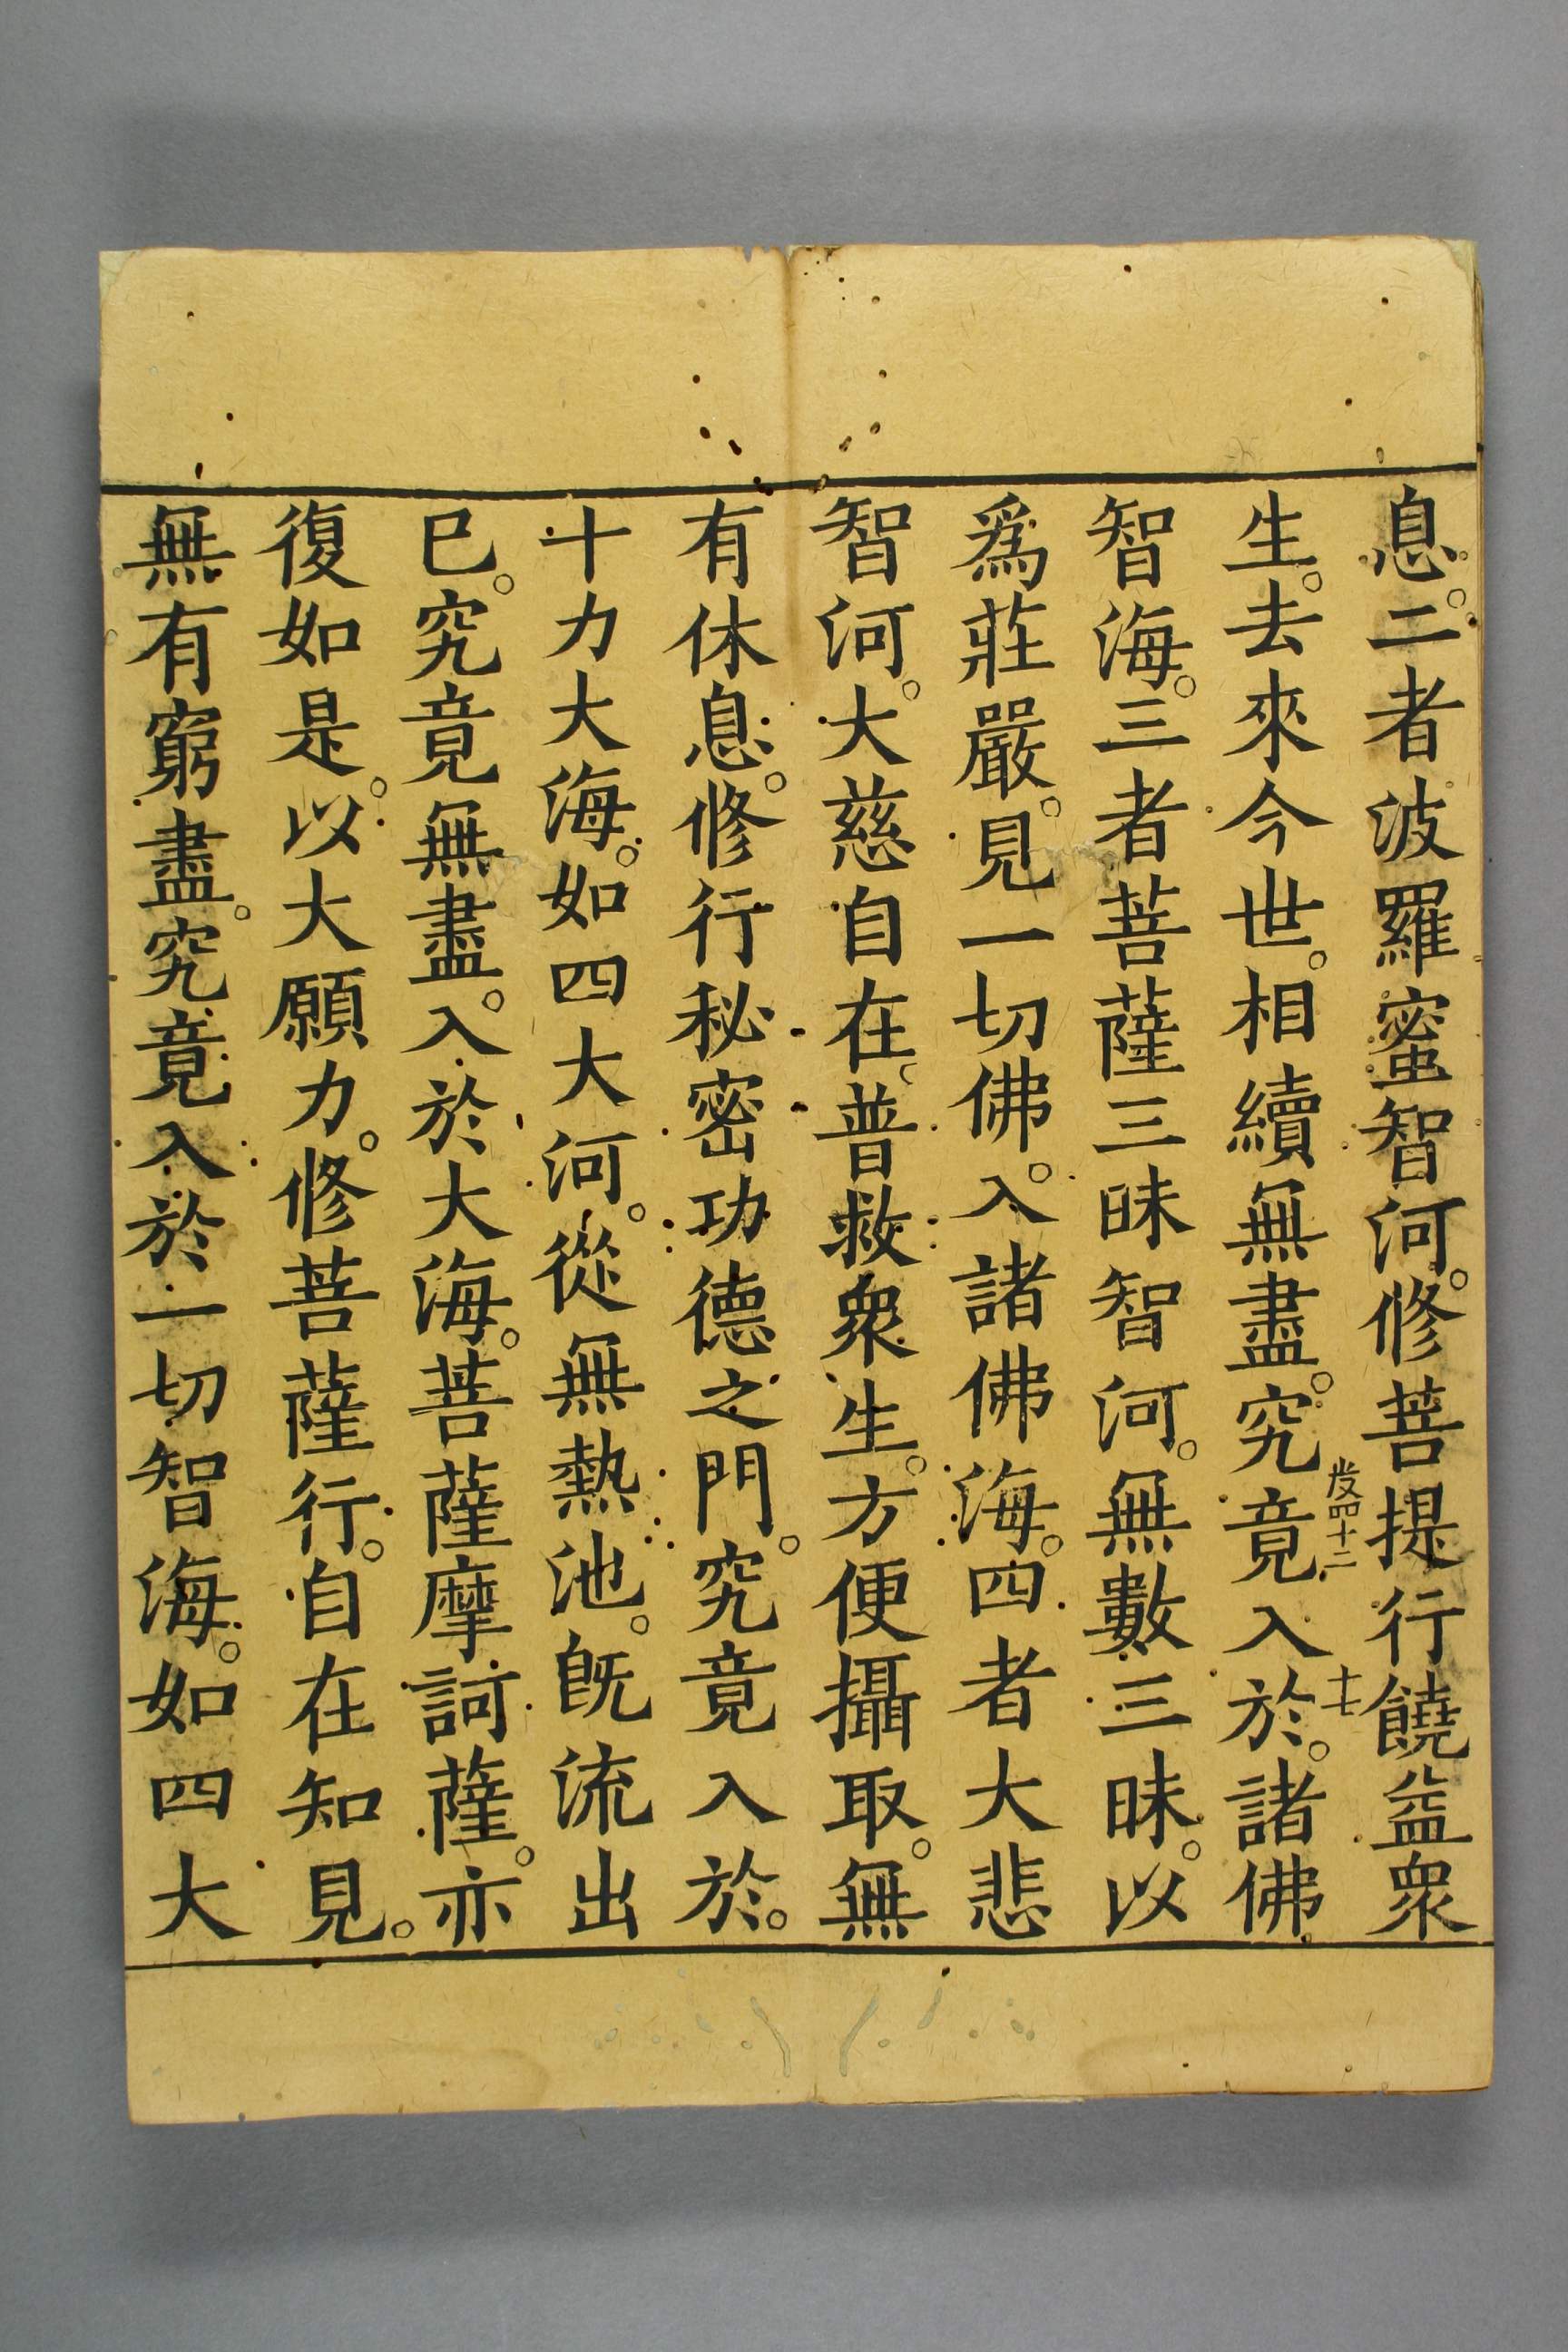 息。二者波羅蜜智河。修菩提行饒益衆
發四十二 十七
生。去來今世。相續無盡。究竟入於。諸佛
智海。三者菩薩三昧智河。無數三昧。以
爲莊嚴。見一切佛。入諸佛海。四者大悲
智河。大慈自在。普救衆生。方便攝取。無
有休息。修行秘密功德之門。究竟入於。
十力大海。如四大河。從無熱池。旣流出
巳。究竟無盡。入於大海。菩薩摩訶薩。亦
復如是。以大願力。修菩薩行。自在知見。
無有窮盡。究竟入於一切智海。如四大